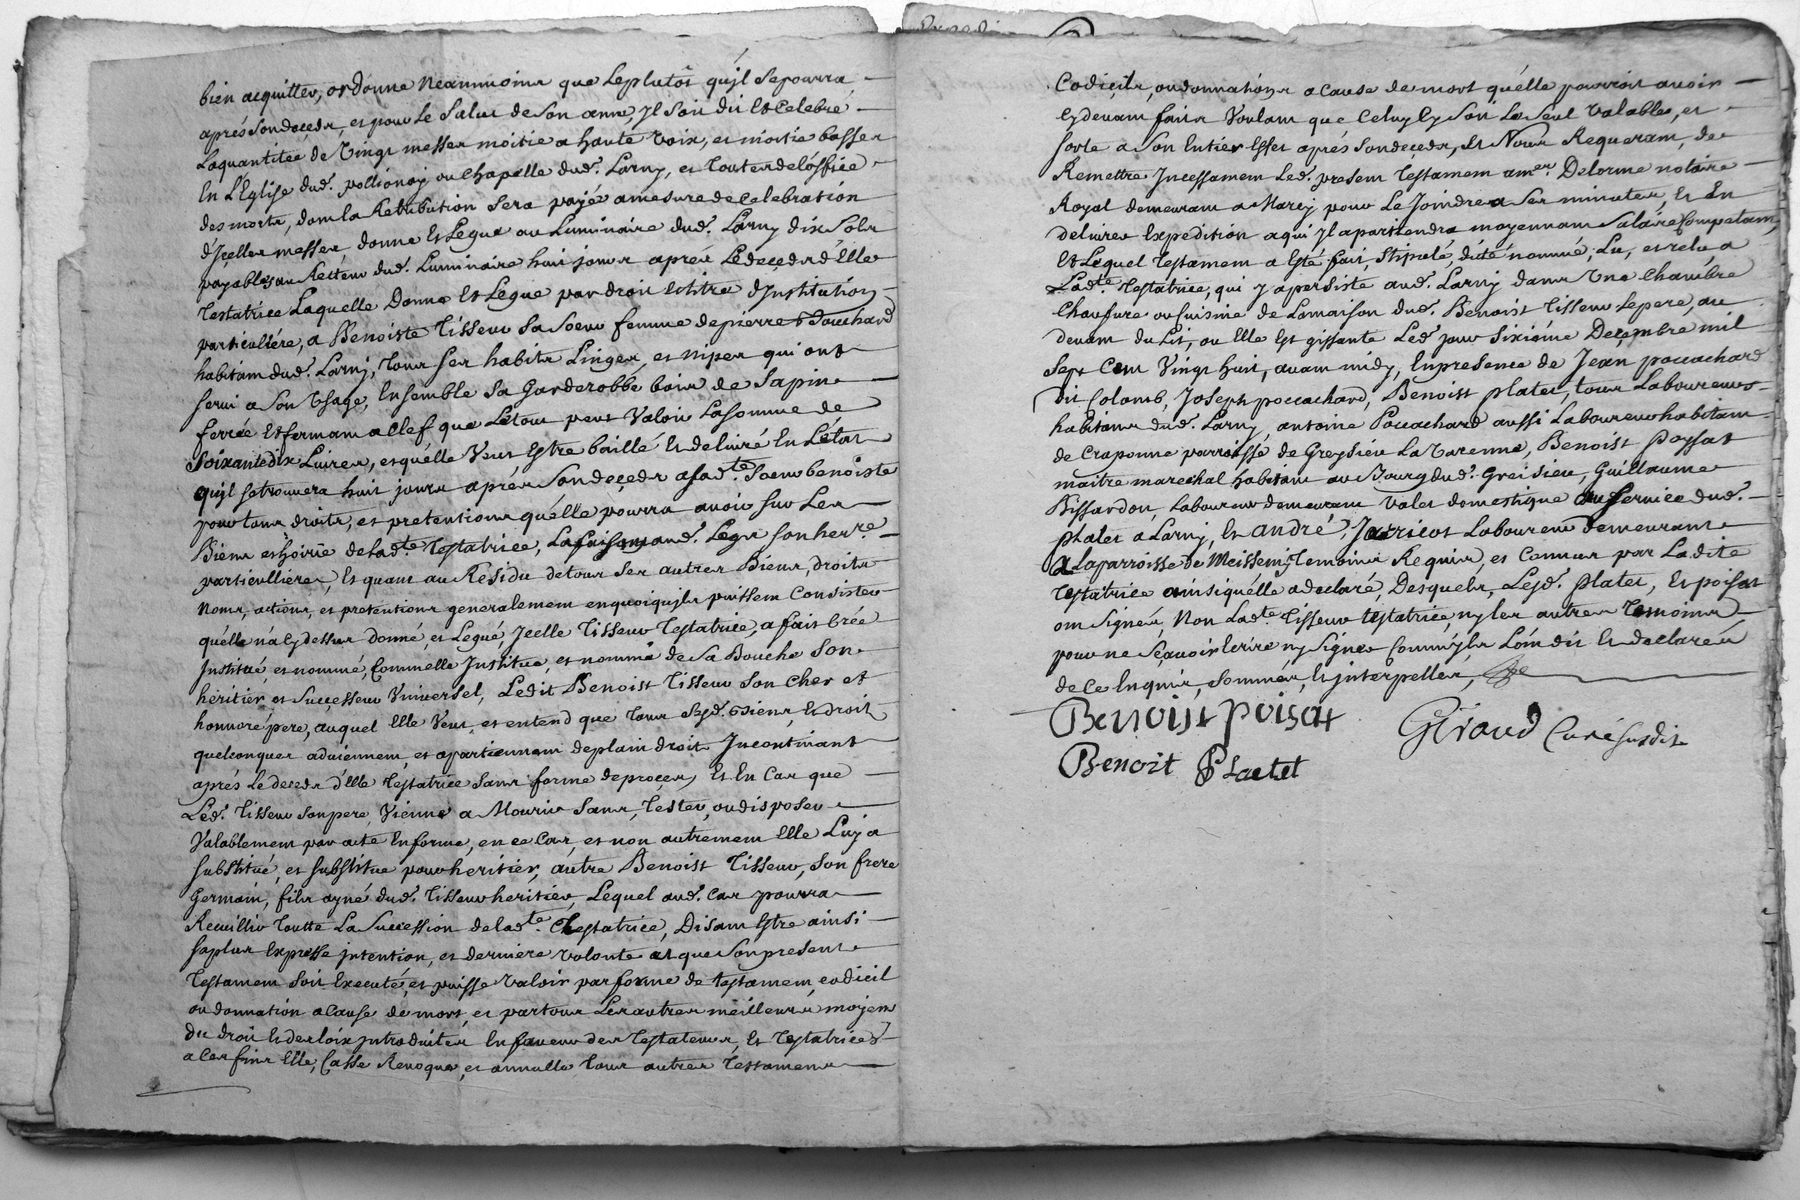 bien acquitter, ordonne neanmoins que le plutôt qu'jl se pourra
aprés son deceds, et pour le salut de son ame, jl soit dit et celebré
la quantitée de vingt messes moitie a haute voix, et moitie basses
en l'Eglise dud. pollionay ou chapelle dud. Larny, et toutes de l'office
des morts, dont la retribution sera payée a mesure de celebration
d'jcelles messes, donne et legue au Luminaire dud. Larny dix sols
payables au Recteur dud. Luminaire huit jours aprés le deceds d'elle
testatrice Laquelle donne et legue par droit et titre d'jnstitution
particuliére, a Benoiste Tisseur sa soeur femme de pierre Bouchard
habitant dud. Larny, tous ses habits Linges, et nipes qui ont
servi a son usage, Ensemble sa garderobbe bois de sapin
ferrée et fermant a clef que le tout peut valoir la somme de
soixante dix Livres, et qu'elle veut estre baillé et delivré en l'état
qu'jl se trouvera huit jours aprés son deçeds a sad.te soeur benoiste
pour tous droits, et pretentions qu'elle pourra avoir sur les
Biens et hoirie de lad.te testatrice, La faisant aud. Legs son her.re
particulliere, et quant au Residu de tous ses autres Biens, droits
noms, actions, et pretentions generalement en quoi qu'jls puissent consister
qu'elle n'a cy dessus donné, et Legué, jcelle Tisseur testatrice, a fait créé
jnstitué, et nommé, comm'elle jnstitue, et nomme de sa Bouche son
héritier et successeur Universel, Ledit Benoist Tisseur son cher et
honnoré pere, auquel elle veut, et entend que tous sesd. Biens, et droits
quelconques adviennent, et apartiennent de plain droit jncontinant
aprés le deceds d'elle testatrice sans forme de proces, et En cas que
Led. Tisseur son pere, vienne a mourir sans, tester, ou disposer
valablement par acte En forme, en ce cas, et non autrement elle Luy a
substitué, et substitue pour heritier, autre Benoist Tisseur, son frere
germain, fils ayné dud. Tisseur heritier, Lequel aud. cas pourra
Recuillir toutte La succession de lad.te testatrice, Disant estre ainsi
sa plus expresse jntention, et derniere volonte et que son present
testament soit Executé, et puisse valoir par forme de testament, codicil
ou donnation a cause de mort, et par tous Les autres meilleurs moyens
du droit et des loix jntroduites en faveur des testateurs, et testatrices
a ces fins elle, casse Revoque, et annulle tous autres testamens
Codicils, ou donnations a cause de mort qu'elle pourroit avoir
cy devant faits voulant que celuy cy soit Le seul valable, et
sorte a son Entier Effet aprés son deceds, Et Nous Requerant, de
Remettre jncessament Led. present testament a m.er Delorme notaire
Royal demeurant a Marcy pour Le joindre a ses minutes, et En
delivrer Expedition a qui jl apartiendra moyennant salaire competant,
et Lequel testament a esté fait, stipulé, dicté nommé, Lu, et relu a
Lad.te testatrice, qui y a persisté aud. Larny dans une chambre
chaufure ou cuisine de la maison dud. Benoist Tisseur le pere, au
devant du Lit, ou elle est gissante Led. jour sixième Decembre mil
sept cent vingt huit, avant midy, En presence de Jean pouachard
dit Colomb, Joseph pouachard, Benoist plater, tous Laboureurs
habitans dud. Larny antoine Pouachard aussi Laboureur habitant
de Craponne parroisse de Greysieu La Varenne, Benoist Poysat
maitre marechal habitant au Bourg dud. Greisieu, Guillaume
Bissardon, Laboureur demeurant valet domestique au service dud.
Plater a Larny, et andré Jatricot Laboureur demeurant
a La parroisse de Meisseni temoins Requis, et connus par Ladite
testatrice ainsi qu'elle a declaré, Desquels, Lesd. plater, et poisat
ont signés, Non Lad.te Tisseur testatrice ny les autres temoins
pour ne sçavoir écrire ny signer comm'jls L'ont dit et declarés
de ce Enquis, sommés, et jnterpellés,
Benoist poisat
Giraud Curé susdit
Benoit Platet